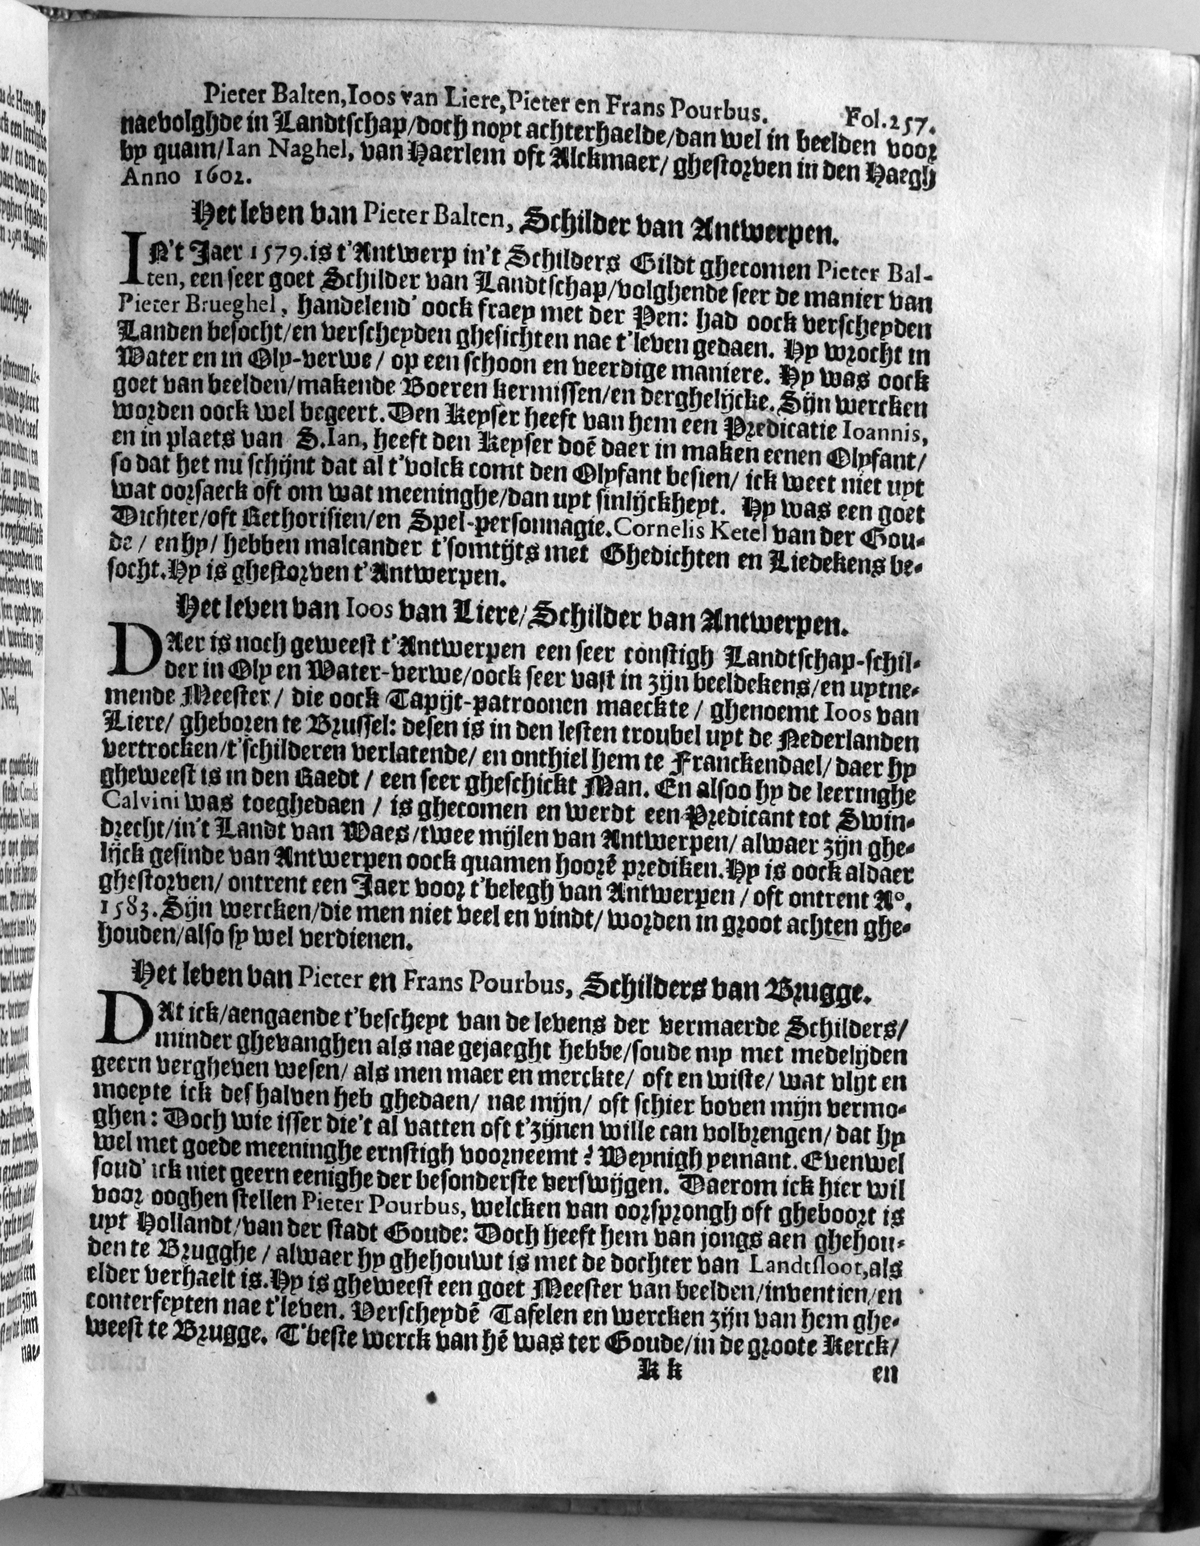 Pieter Balten, Ioos van Liere, Pieter en Frans Pourbus. Fol.257.
naevolghde in Landtschap/doch noyt achterhaelde/dan wel in beelden voor
by quam/Ian Naghel, van Haerlem oft Alckmaer/ ghestorven in den Haegh
Anno 1602.
Het leven van Pieter Balten, Schilder van Antwerpen.
IN't Jaer 1579.is t'Antwerp in't Schilders Gildt ghecomen Pieter Bal-
ten, een seer goet Schilder van Landtschap/volghende seer de manier van
Pieter Brueghel, handelend' oock fraey met der Pen: had oock verscheyden
Landen besocht/en verscheyden ghesichten nae t'leven gedaen. Hy wrocht in
Water en in Oly-verwe/ op een schoon en veerdige maniere. Hy was oock
goet van beelden/makende Boeren kermissen/en derghelijcke. Sijn wercken
worden oock wel begeert. Den Keyser heeft van hem een Predicatie Ioannis,
en in plaets van S.Ian, heeft den Keyser doē daer in maken eenen Olyfant/
so dat het nu schijnt dat al t'volck comt den Olyfant besien/ ick weet niet uyt
wat oorsaeck oft om wat meeninghe/dan uyt sinlijckheyt. Hy was een goet
Dichter/oft Rethorisien/en Spel-personnagie. Cornelis Ketel van der Gou-
de/ en hy/ hebben malcander t'somtijts met Ghedichten en Liedekens be-
socht. Hy is ghestorven t'Antwerpen.
Het leven van Ioos van Liere/ Schilder van Antwerpen.
DAer is noch geweest t'Antwerpen een seer constigh Landtschap-schil-
der in Oly en Water-verwe/oock seer vast in zijn beeldekens/en uytne-
mende Meester/ die oock Tapijt-patroonen maeckte/ ghenoemt Ioos van
Liere/ gheboren te Brussel: desen is in den lesten troubel uyt de Nederlanden
vertrocken/t'schilderen verlatende/ en onthiel hem te Franckendael/ daer hy
gheweest is in den Raedt/ een seer gheschickt Man. En alsoo hy de leeringhe
Calvini was toeghedaen/ is ghecomen en werdt een Predicant tot Swin-
drecht/in't Landt van Waes/twee mijlen van Antwerpen/ alwaer zijn ghe-
lijck gesinde van Antwerpen oock quamen hoorē prediken. Hy is oock aldaer
ghestorven/ ontrent een Jaer voor t'belegh van Antwerpen/ oft ontrent Aº.
1583. Sijn wercken/die men niet veel en vindt/ worden in groot achten ghe-
houden/also sy wel verdienen.
Het leven van Pieter en Frans Pourbus, Schilders van Brugge.
DAt ick/aengaende t'bescheyt van de levens der vermaerde Schilders/
minder ghevanghen als nae gejaeght hebbe/soude my met medelijden
geern vergheven wesen/ als men maer en merckte/ oft en wiste/ wat vlijt en
moeyte ick deshalven heb ghedaen/ nae mijn/ oft schier boven mijn vermo-
ghen: Doch wie isser die't al vatten oft t'zijnen wille can volbrengen/ dat hy
wel met goede meeninghe ernstigh voorneemt? Weynigh yemant. Evenwel
soud' ick niet geern eenighe der besonderste verswijgen. Daerom ick hier wil
voor ooghen stellen Pieter Pourbus, welcken van oorsprongh oft gheboort is
uyt Hollandt/van der stadt Goude: Doch heeft hem van jongs aen ghehou-
den te Brugghe/ alwaer hy ghehouwt is met de dochter van Landtsloot, als
elder verhaelt is. Hy is gheweest een goet Meester van beelden/inventien/en
conterfeyten nae t'leven. Verscheydē Tafelen en wercken zijn van hem ghe-
weest te Brugge. T'beste werck van hē was ter Goude/in de groote Kerck/
K k en